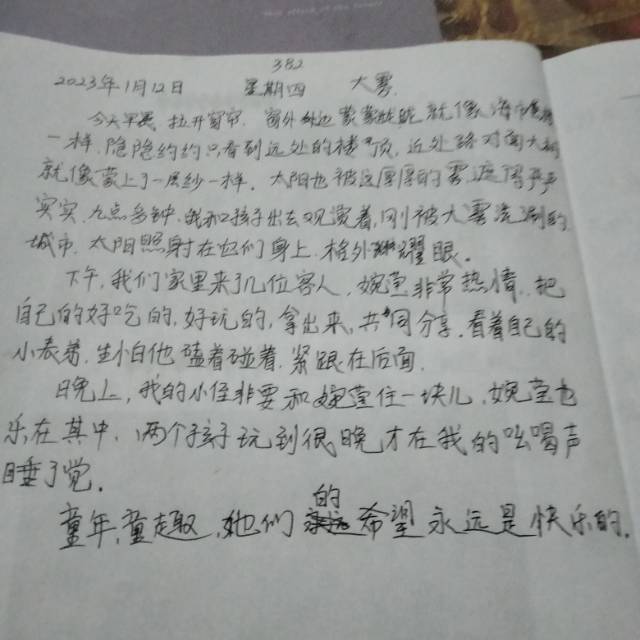 382
2023年1月12日 星期四 大雾
今天早晨, 拉开窗帘, 窗外边蒙蒙胧胧, 就像
一样, 隐隐约约只看到远处的楼顶, 近处路对面大树
就像蒙上了一层纱一样. 太阳也被这厚厚的雾遮得严严
实实. 九点多钟, 我和孩子出去观赏着, 刚被大雾洗涮的
城市. 太阳照射在它们身上, 格外耀眼。
下午, 我们家里来了几位客人, 婉莹非常热情, 把
自己的好吃的, 好玩的, 拿出来, 共同分享, 看着自己的
小表弟, 生怕他磕着碰着, 紧跟在后面.
晚上, 我的小侄非要和婉莹住一块儿, 婉莹也
乐在其中, 两个孩子玩到很晚才在我的吆喝声
睡了觉.
童年, 童趣, 她们的希望永远是快乐的.